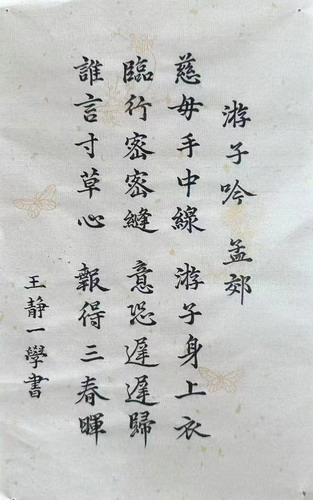 游子吟 孟郊
慈母手中線 游子身上衣
臨行密密縫 意恐遲遲歸
誰言寸草心 報得三春暉
王靜一學書